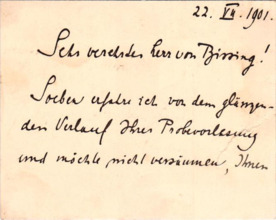 22. VII. 1901.
Sehr verehrter Herr von Bissing!
Soeben erfahre ich von dem glänzen-
den Verlauf Ihrer Probevorlesung
und möchte nicht versäumen, Ihnen